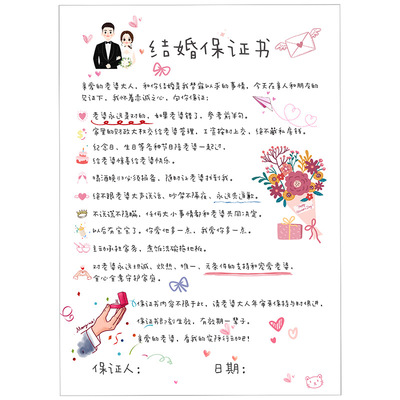 结婚保证书
亲爱的老婆大人,和你结婚是我梦寐以求的事情,今天在亲人和朋友的
见证下,我怀着赤诚之心,向你保证:
老婆永远是对的,如果老婆错了,参考前半句。
家里的财政大权交给老婆管理,工资按时上交,绝不藏私房钱。
纪念日、生日等各种节日陪老婆一起过。
给老婆惊喜给老婆快乐。
烟酒晚归必须报备,随时让老婆找到我。
绝不跟老婆大声说话,吵架不隔夜,永远先道歉。
不说谎不隐瞒,任何大小事情都和老婆共同决定。
以后有宝宝了,你爱他多一点,我爱你多一点。
主动承担家务,煮饭洗碗拖地板。
对老婆永远坦诚、炽热、惟一、无条件的支持和宠爱老婆,
全心全意守护家庭。
保证书内容不限于此,请老婆大人年审来保持与时俱进,
保证书即刻生效,有效期一辈子。
亲爱的老婆,看我的实际行动吧!
Marry me!
保证人:
日期: